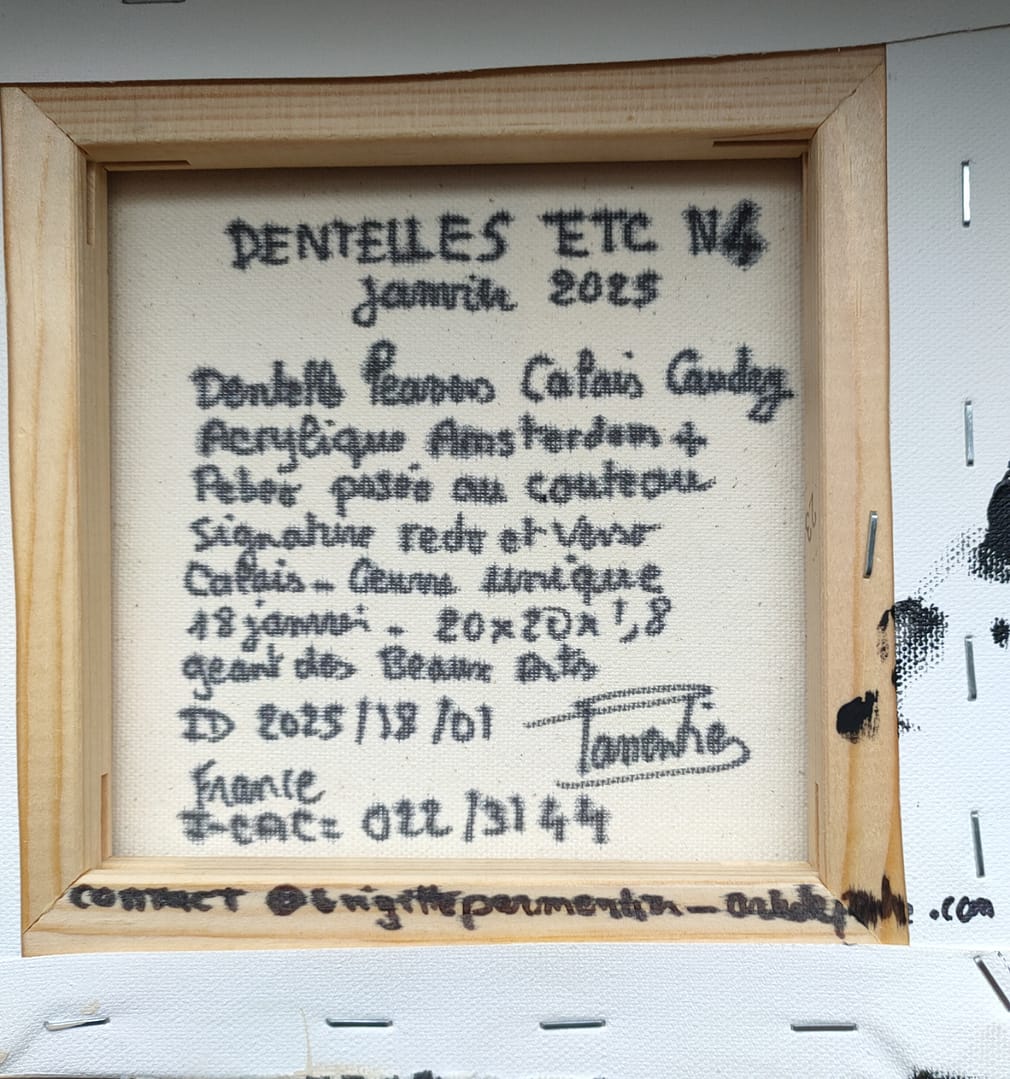 DENTELLES ETC N4
janvier 2025
Dentelle Leavers Calais Caudry
Acrylique Amsterdam +
Pebeo posée au couteau
Signature recto et Verso
Calais - Oeuvre unique
18 janvier - 20x20x1,8
géant des Beaux Arts
ID 2025/18/01
France
I-CAC= 022/3144
CONTACT @brigittepermentier- .com